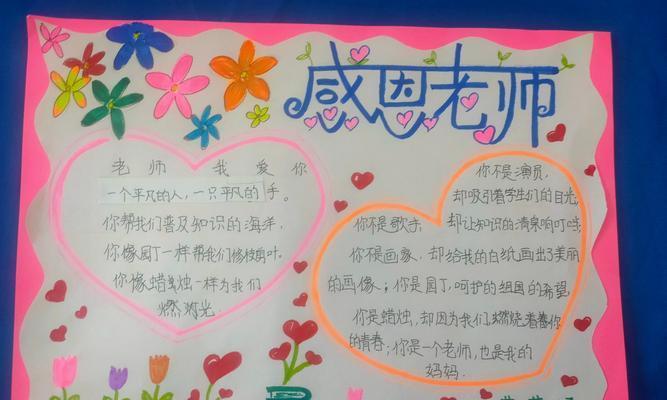 感恩老师
老师 我爱你
一个平凡的人,一只平凡的手。
你帮我们普及知识的海洋,
你像园丁一样帮我们修枝剪叶。
你像蜡烛一样为我们
燃灯光
你不是演员,
却吸引着学生们的目光,
你不是歌手 却让知识的清泉响叮咚
你不是画家,却给我的白纸,画出了美丽
的画像;你是园丁,呵护的组国的希望
你是蜡烛,却因为我们,燃烧着你
的青春;你是一个老师,也是我的
妈妈.